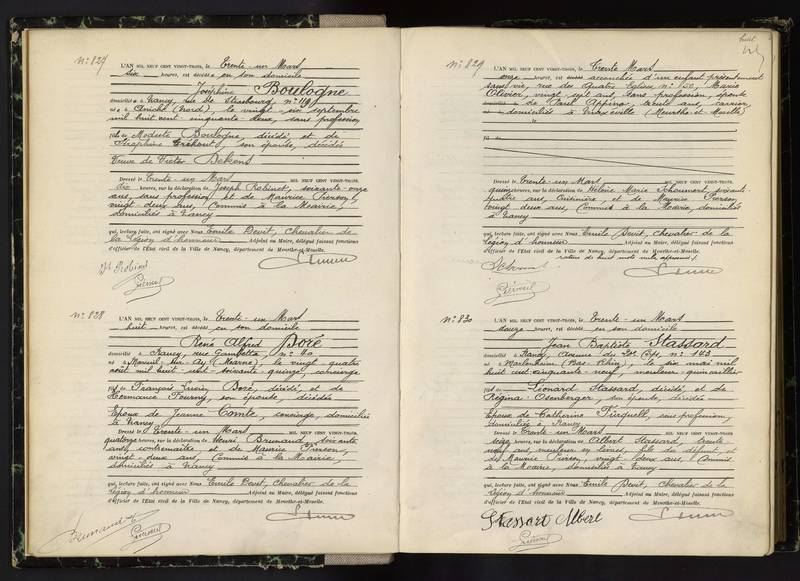 N° 827
L'AN MIL NEUF CENT VINGT-TROIS, le Trente-un Mars
six heures, est décédée en son domicile
Joséphine Boulogne
domiciliée à Nancy, rue de Strasbourg, n° 119
née à (Nord), le vingt-six septembre
mil huit cent cinquante-deux, sans profession
fille de Modeste Boulogne, décédé et de
Séraphine, son épouse, décédée
Veuve de Victor
Dressé le Trente-un Mars MIL NEUF CENT VINGT-TROIS,
dix heures, sur la déclaration de Joseph Robinet, soixante-onze
ans, sans profession et de Maurice Pierson,
vingt-deux ans, Commis à la Mairie,
domiciliés à Nancy
qui, lecture faite, ont signé avec Nous Emile Devit, Chevalier de
la Légion d'honneur Adjoint au Maire, délégué faisant fonctions
d'officier de l'État civil de la Ville de Nancy, département de Meurthe-et-Moselle.
N° 828
L'AN MIL NEUF CENT VINGT-TROIS, le Trente-un Mars
huit heures, est décédé en son domicile
René Alfred Boré
domicilié à Nancy, rue Gambetta, n° 40
né à Mareuil-sur-Ay (Marne), le vingt-quatre
août mil huit cent soixante-quinze, concierge
fils de François Boré, décédé, et de
Hermance Fourny, son épouse, décédée
Epoux de Jeanne Comte, concierge, domiciliée
à Nancy
Dressé le Trente-un Mars MIL NEUF CENT VINGT-TROIS,
quatorze heures, sur la déclaration de Henri Brunaud, soixante
ans, contremaître et de Maurice Pierson,
vingt-deux ans, Commis à la Mairie
domiciliés à Nancy
qui, lecture faite, ont signé avec Nous Emile Devit, Chevalier de la
Légion d'honneur Adjoint au Maire, délégué faisant fonctions
d'officier de l'État civil de la Ville de Nancy, département de Meurthe-et-Moselle.
N° 829
L'AN MIL NEUF CENT VINGT-TROIS, le Trente Mars
onze heures, est accouchée d'un enfant présentement
sans vie, rue des Quatre Eglises n° 30, Marie
Olivier, vingt-sept ans, sans profession, épouse
de Paul, trente ans, carrier,
domiciliés à Maxéville (Meurthe-et-Moselle)
Dressé le Trente-un Mars MIL NEUF CENT VINGT-TROIS,
quinze heures, sur la déclaration de Hélène Marie, soixante-
quatre ans, Cuisinière, et de Maurice Pierson,
vingt-deux ans, Commis à la Mairie, domiciliés
à Nancy
qui, lecture faite, ont signé avec Nous Emile Devit, Chevalier de la
Légion d'honneur Adjoint au Maire, délégué faisant fonctions
d'officier de l'État civil de la Ville de Nancy, département de Meurthe-et-Moselle.
rature de huit mots nuls approuvée
N° 830
L'AN MIL NEUF CENT VINGT-TROIS, le Trente-un Mars
douze heures, est décédé en son domicile
Jean Baptiste Stassard
domicilié à Nancy, Avenue du 20e Corps, n° 143
né à Marlenheim (Bas-Rhin), le six mai mil
huit cent cinquante-neuf, mouleur-quincaillier
fils de Léonard Stassard, décédé et de
Régina Osenberger, son épouse, décédée
Epoux de Catherine, sans profession,
domiciliée à Nancy
Dressé le Trente-un Mars MIL NEUF CENT VINGT-TROIS,
seize heures, sur la déclaration de Albert Stassard, trente-
ans, fils du défunt, et
de Maurice Pierson, vingt-deux ans, Commis
à la Mairie, domiciliés à Nancy
qui, lecture faite, ont signé avec Nous Emile Devit, Chevalier de la
Légion d'honneur Adjoint au Maire, délégué faisant fonctions
d'officier de l'État civil de la Ville de Nancy, département de Meurthe-et-Moselle.
Stassart Albert